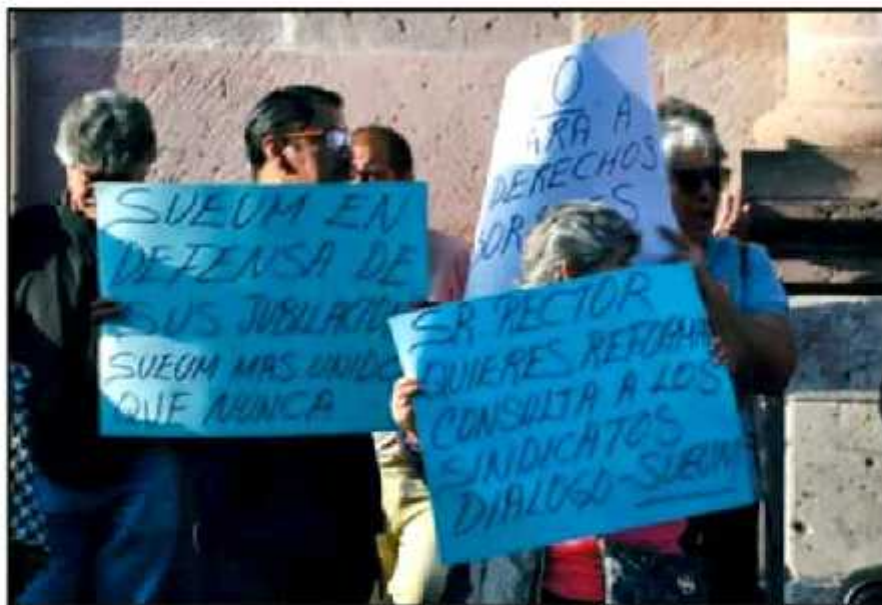 SUEUM EN
DEFENSA DE
SUS JUBILACION
SUEUM MAS UNIDO
QUE NUNCA
O
ARA A
DERECHOS
SR RECTOR
QUIERES REFORMA
CONSULTA A LOS
SINDICATOS
DIALOGO-SUEUM